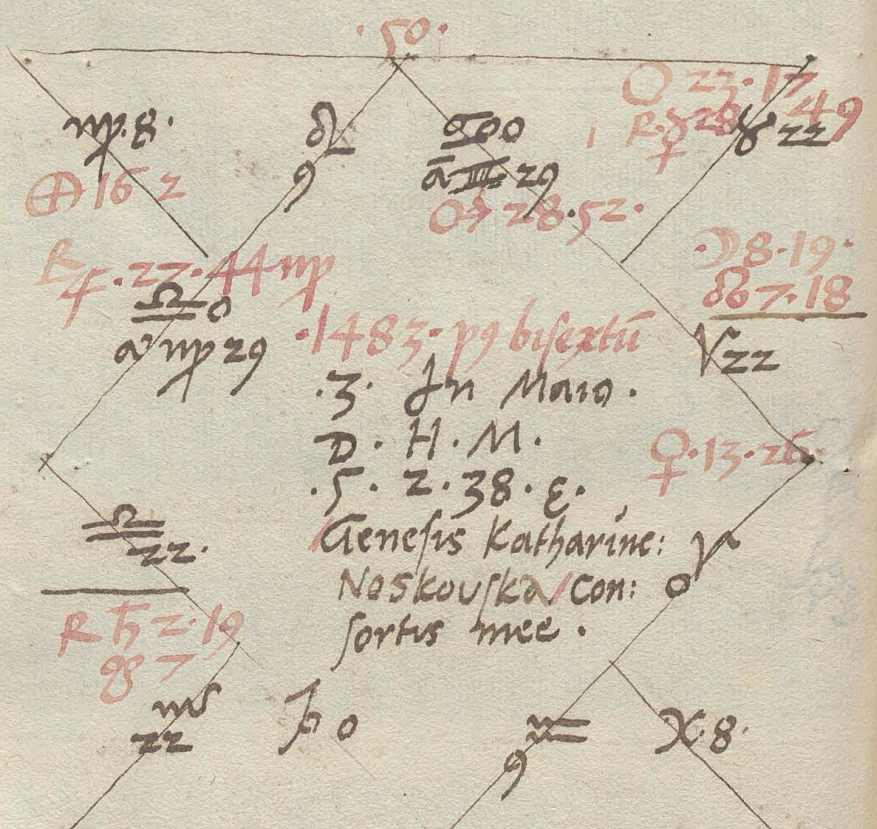 ·50·
♍·8·
♌ 9
♋ 0 0
ā ♊ 29
☉ 23·17
49
♉ 22
⊕ 16 2
28·52·
☽ 8·19·
☊ 7·18
R ♃·27·44 ♍
♎ 0
♍ 29
·1483· p9 bisextū
♈ 22
·3· In Maio·
D· H· M·
♀·13·26·
·5· 2·38·
♎ 22·
Genesis Katharine:
♈ 0
Noskouska / Con:
sortis mee·
R ♄ 2·19
☋ 7
♏ 22
♑ 0
♒ 9
♓·8·